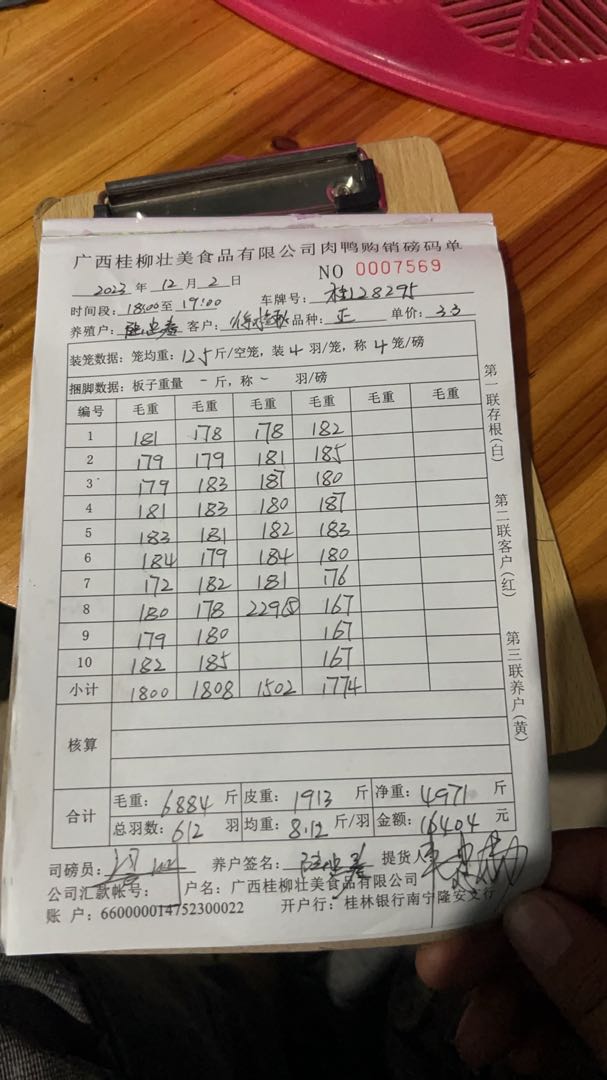 广西桂柳壮美食品有限公司肉鸭购销磅码单
NO 0007569
2023 年 12 月 2 日
时间段: 18:00 至 19:00 车牌号: 桂128295
养殖户: 客户: 品种: 正 单价: 3.3
装笼数据: 笼均重: 12.5 斤/空笼, 装 4 羽/笼, 称 4 笼/磅
捆脚数据: 板子重量 - 斤, 称 - 羽/磅
编号 毛重 毛重 毛重 毛重 毛重 毛重
1 181 178 178 182
2 179 179 181 185
3 179 183 187 180
4 181 183 180 187
5 183 181 182 183
6 184 179 184 180
7 172 182 181 176
8 180 178 229⑤ 167
9 179 180 167
10 182 185 167
小计 1800 1808 1502 1774
核算
合计 毛重: 6884 斤 皮重: 1913 斤 净重: 4971 斤
总羽数: 612 羽 均重: 8.12 斤/羽 金额: 16404 元
司磅员: 养户签名: 提货人
公司汇款帐号: 户名: 广西桂柳壮美食品有限公司
账 户: 660000014752300022 开户行: 桂林银行南宁隆安支行
第一联存根(白)
第二联客户(红)
第三联养户(黄)